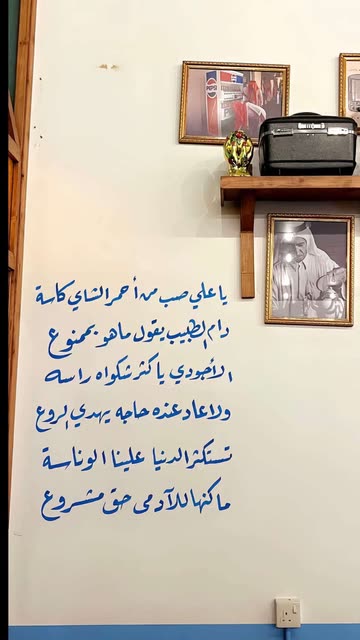 PEPSI
يا علي صب من أحمر الشاي كاسة
دام الطبيب يقول ماهو بممنوع
الأجودي يا كثر شكواه راسه
ولا عاد عنده حاجه يهدي الروع
تستكثر الدنيا علينا الوناسة
ما كنها للآدمي حق مشروع